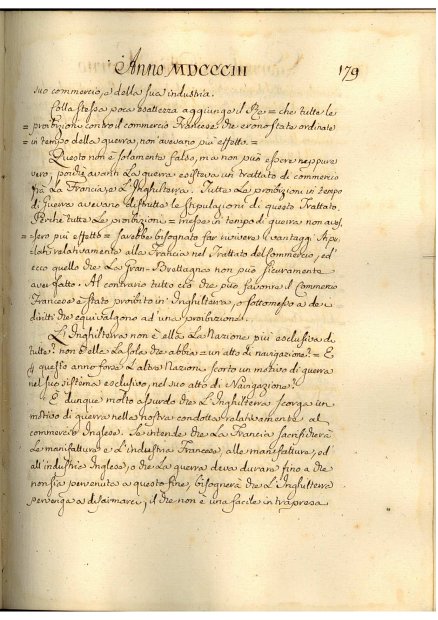 Anno MDCCCIII 179
suo commercio, e della sua industria.
Colla stessa poca esattezza aggiunge il Re = che tutte le
= proibizioni contro il commercio Francese che erono state ordinate
= in tempo della guerra, non avevano più effetto. =
Questo non è solamente falso, ma non può essere neppure
vero; poiche avanti la guerra esisteva un trattato di commercio
frà La Francia, e L'Inghilterra. Tutte Le proibizioni in tempo
di Guerra avevano distrutta le stipulazioni di questo Trattato.
Perchè tutte Le proibizioni = messe in tempo di guerra non aves
= sero più effetto = sarebbe bisognato far rivivere i vantaggi stipu
lati relativamente alla Francia nel Trattato del Commercio, ed
ecco quello che La Gran-Brettagna non può sicuramente
aver fatto. Al contrario tutto ciò che può favorire il Commercio
Francese è stato proibito in Inghilterra, o sottomesso a de
diritti che equivalgono ad una proibizione.
L'Inghilterra non è ella La Nazione più esclusiva di
tutte? non è ella La sola che abbia = un atto di navigazione? = E
questo anno forse L'altre Nazioni scorto un motivo di guerra
nel suo sistema esclusivo, nel suo atto di Navigazione?
È dunque molto assurdo che L'Inghilterra scorga un
motivo di guerra nella nostra condotta relativamente al
commercio Inglese. Se intende che La Francia sacrificherà
Le manifatture e L'industria Francese, alle manifatture, ed
all'industria Inglese, o che La guerra deva durare fino a che
non sia pervenuta a questo fine, bisognerà che L'Inghilterra
pervenga a disarmarci, il che non è una facile intrapresa